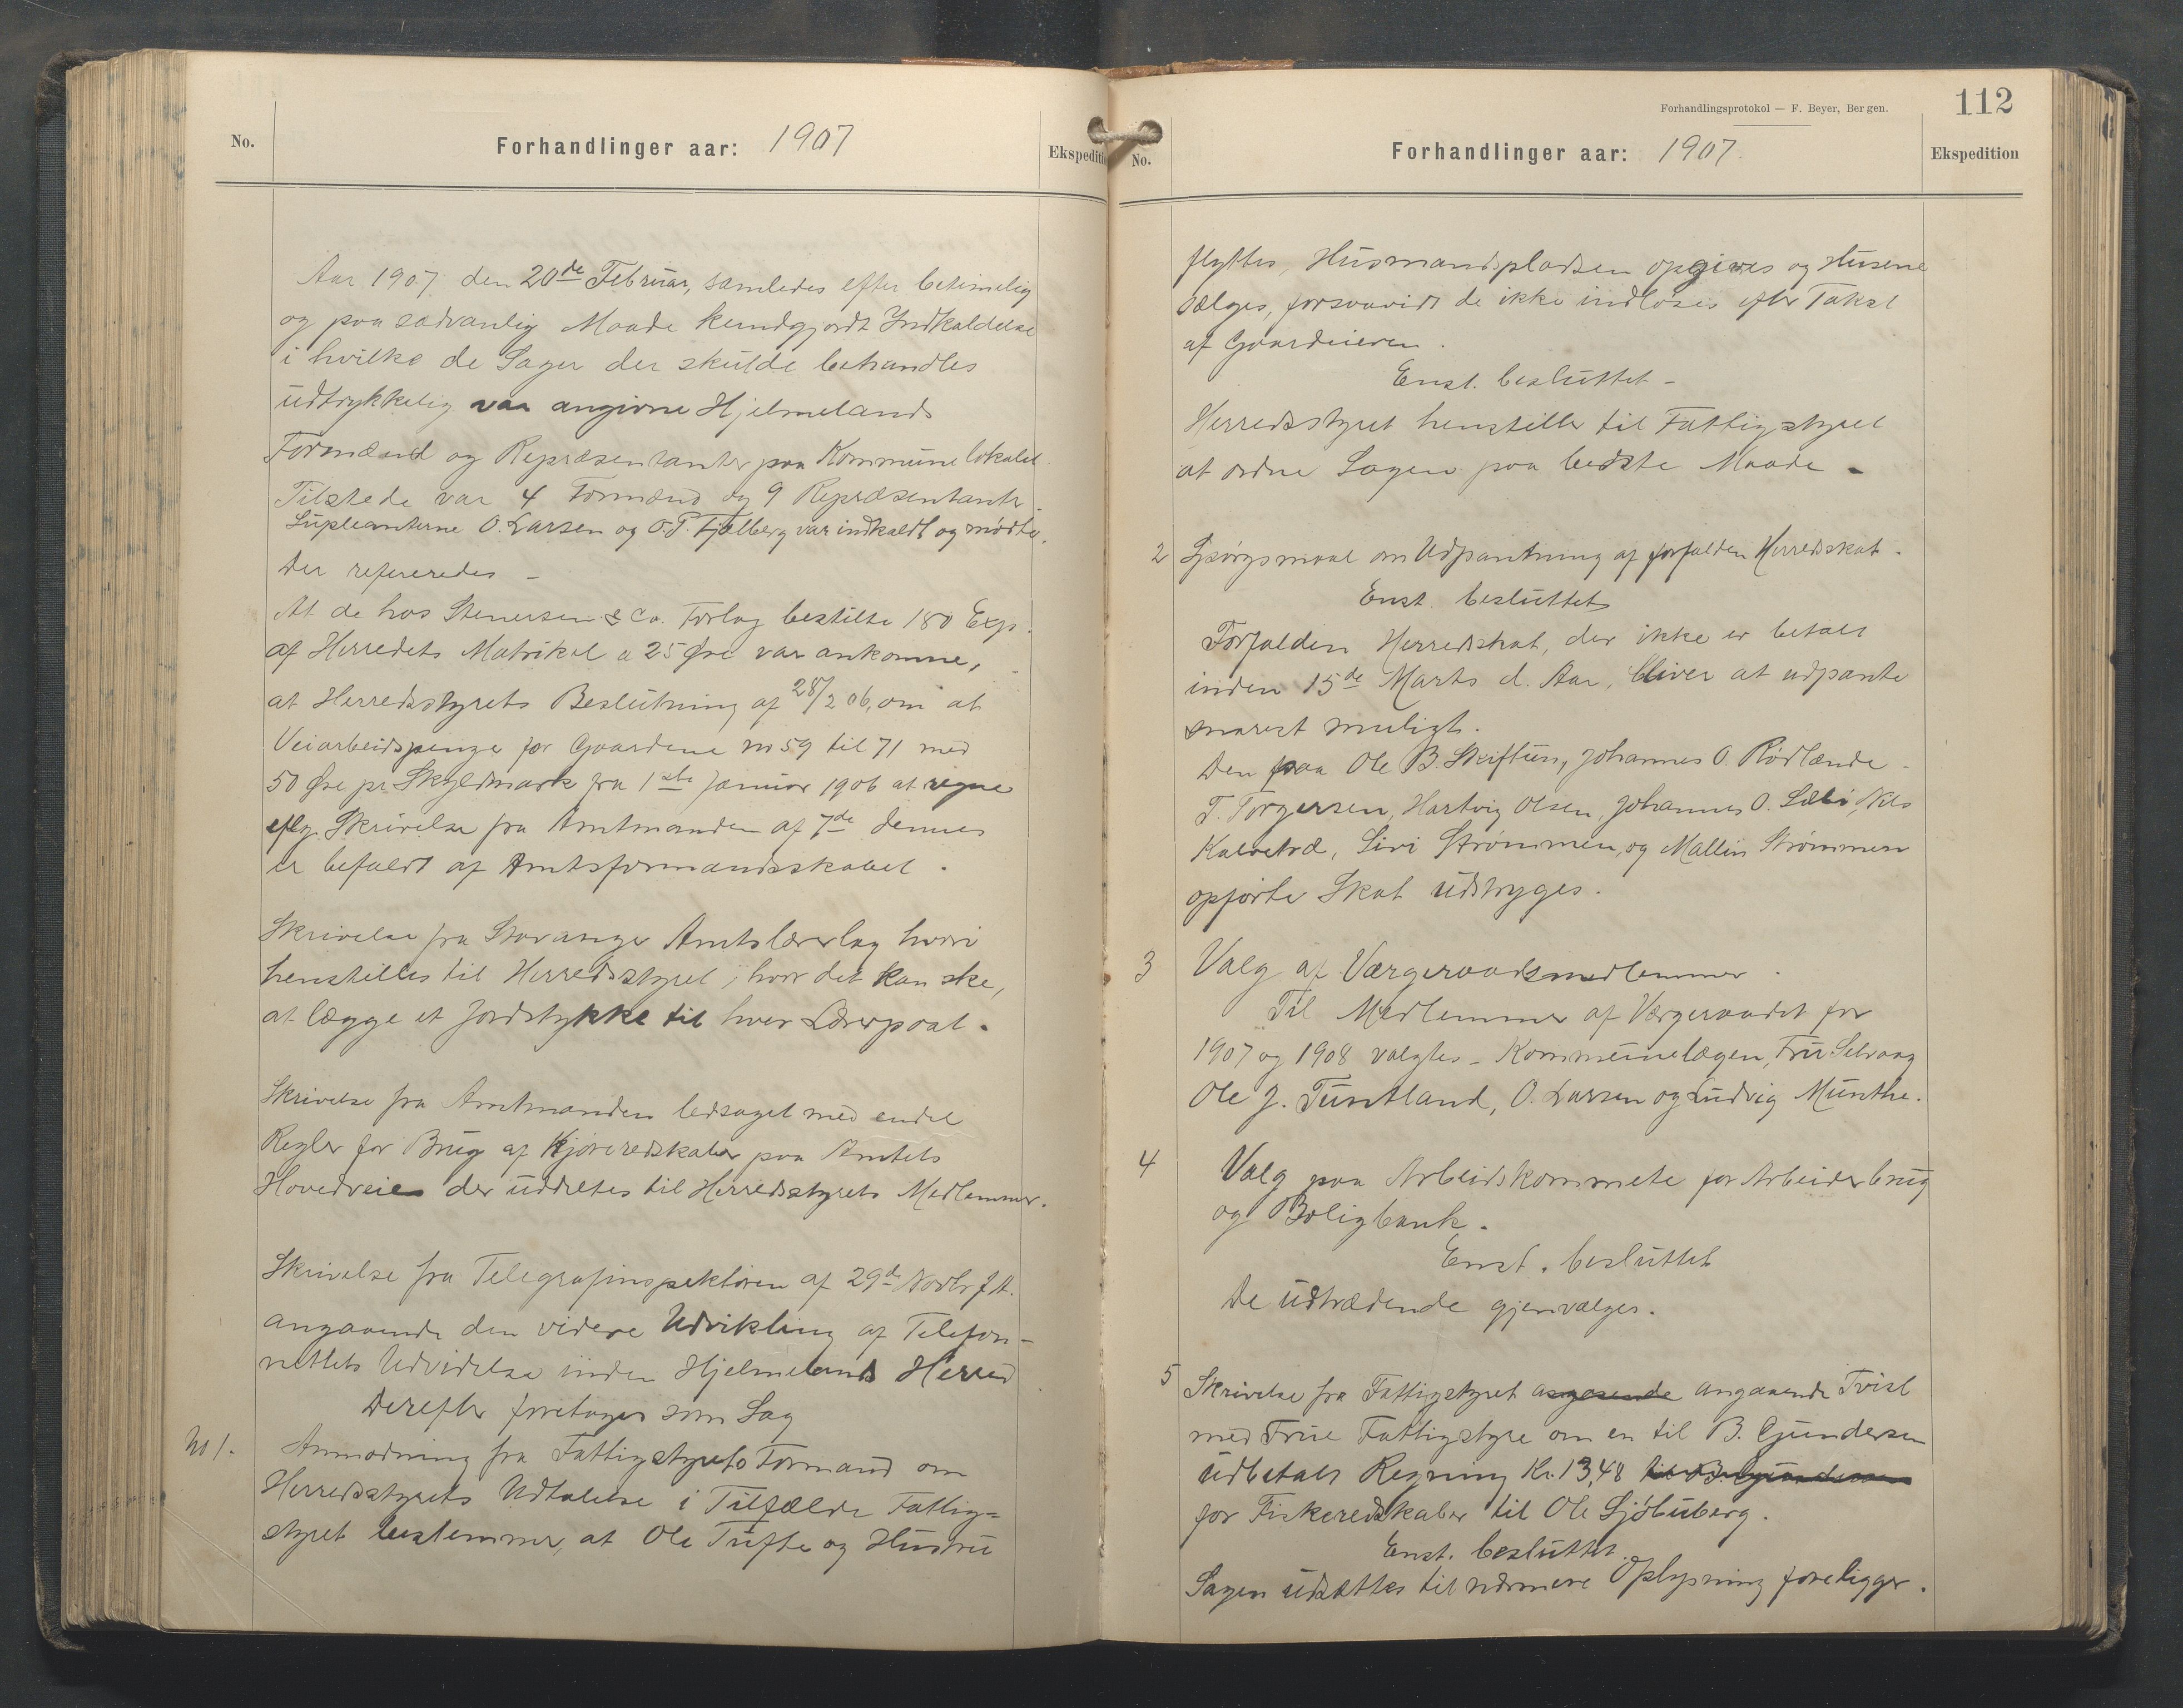 No.
Forhandlinger aar: 1907
Ekspediti
Aar 1907 den 20de Februar, samledes efter betimelig
og paa sædvanlig Maade kundgjordt Indkaldelse
i hvilke de Sager der skulde behandles
udtrykkelig var angivne Hjelmelands
Formænd og Repræsentanter paa Kommunelokalet.
Tilstede var 4 Formænd og 9 Repræsentantr.
Supleanterne O. Larsen og O. P. Fjælberg var indkaldt og mødte.
Der refereredes –
At de hos Stenersen & Co. Forlag bestilte 180 Exp.
af Herredets Matrikel a 25 Øre var ankomne,
at Herredsstyrets Beslutning af 28/2 06, om at
Veiarbeidspenge for Gaardene no 59 til 71 med
50 Øre pr Skyldmark fra 1ste Januar 1906 at regne
eflg. Skrivelse fra Amtmanden af 7de dennes
er bifaldt af Amtsformandsskabet.
Skrivelse fra Stavanger Amtslærerlag hvori
henstilles til Herredsstyret, hvor det kan ske,
at lægge et Jordstykke til hver Lærerpost.
Skrivelse fra Amtmanden ledsaget med endel
Regler for Brug af Kjøreredskaber paa Amtets
Hovedveie der uddeltes til Herredsstyrets Medlemmer.
Skrivelse fra Telegrafinspektøren af 29de Novbr f. A.
angaaende den videre Udvikling af Telefon-
nettets Udvidelse inden Hjelmelands Herred
Derefter foretoges som Sag
No 1.
Anmodning fra Fattigstyrets Formand om
Herredsstyrets Udtalelse i Tilfælde Fattig=
styret bestemmer, at Ole Tufte og Hustru
Forhandlingsprotokol — F. Beyer, Bergen.
112
No.
Forhandlinger aar: 1907.
Ekspedition
flyttes, Husmandspladsen opgives og Husene
sælges, forsaavidt de ikke indløses efter Takst
af Gaardeieren.
Enst. besluttet –
Herredsstyret henstiller til Fattigstyret
at ordne Sagen paa bedste Maade –
2 Spørgsmaal om Udpantning af forfalden Herredsskat.
Enst. besluttet
Forfalden Herredsskat, der ikke er betalt
inden 15de Marts d. Aar, bliver at udpante
snarest muligt.
Den paa Ole B. Skiftun, Johannes O. Rødlænde
T. Torgersen, Hartvig Olsen, Johannes O. Sæbø, Nils
Kalvetræ, Siri Strømmen, og Mallin Strømmen
opførte Skat udstryges.
3 Valg af Værgeraadsmedlemmer.
Til Medlemmer af Værgeraadet for
1907 og 1908 valgtes – Kommunelægen, Fru Selvaag
Ole J. Tuntland, O. Larsen og Ludvig Munthe.
4 Valg paa Arbeidskommete for Arbeiderbrug
og Boligbank.
Enst. besluttet
De udtrædende gjenvælges.
5 Skrivelse fra Fattigstyret angaaende angaaende Tvist
med Frue Fattigstyre om en til B. Gundersen
udbetalt Regning Kr. 13,48 til B. Gundersen
for Fiskeredskaber til Ole Sjøbuberg.
Enst. besluttet.
Sagen udsættes til nærmere Oplysning foreligger.